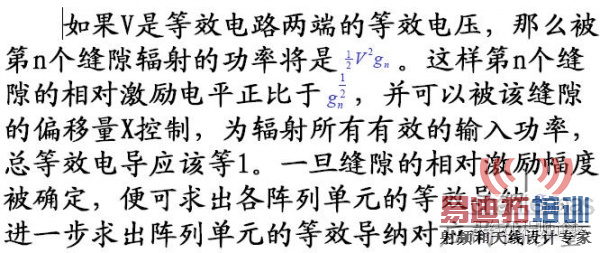 如果V是等效电路两端的等效电压，那么被
第n个缝隙辐射的功率将是 ½V²gₙ 。这样第n个缝
隙的相对激励电平正比于 gₙ^½ ，并可以被该缝隙
的偏移量X控制，为辐射所有有效的输入功率，
总等效电导应该等1。一旦缝隙的相对激励幅度
被确定，便可求出各阵列单元的等效导纳
进一步求出阵列单元的等效导纳对
易迪拓培训
射频和天线设计专家